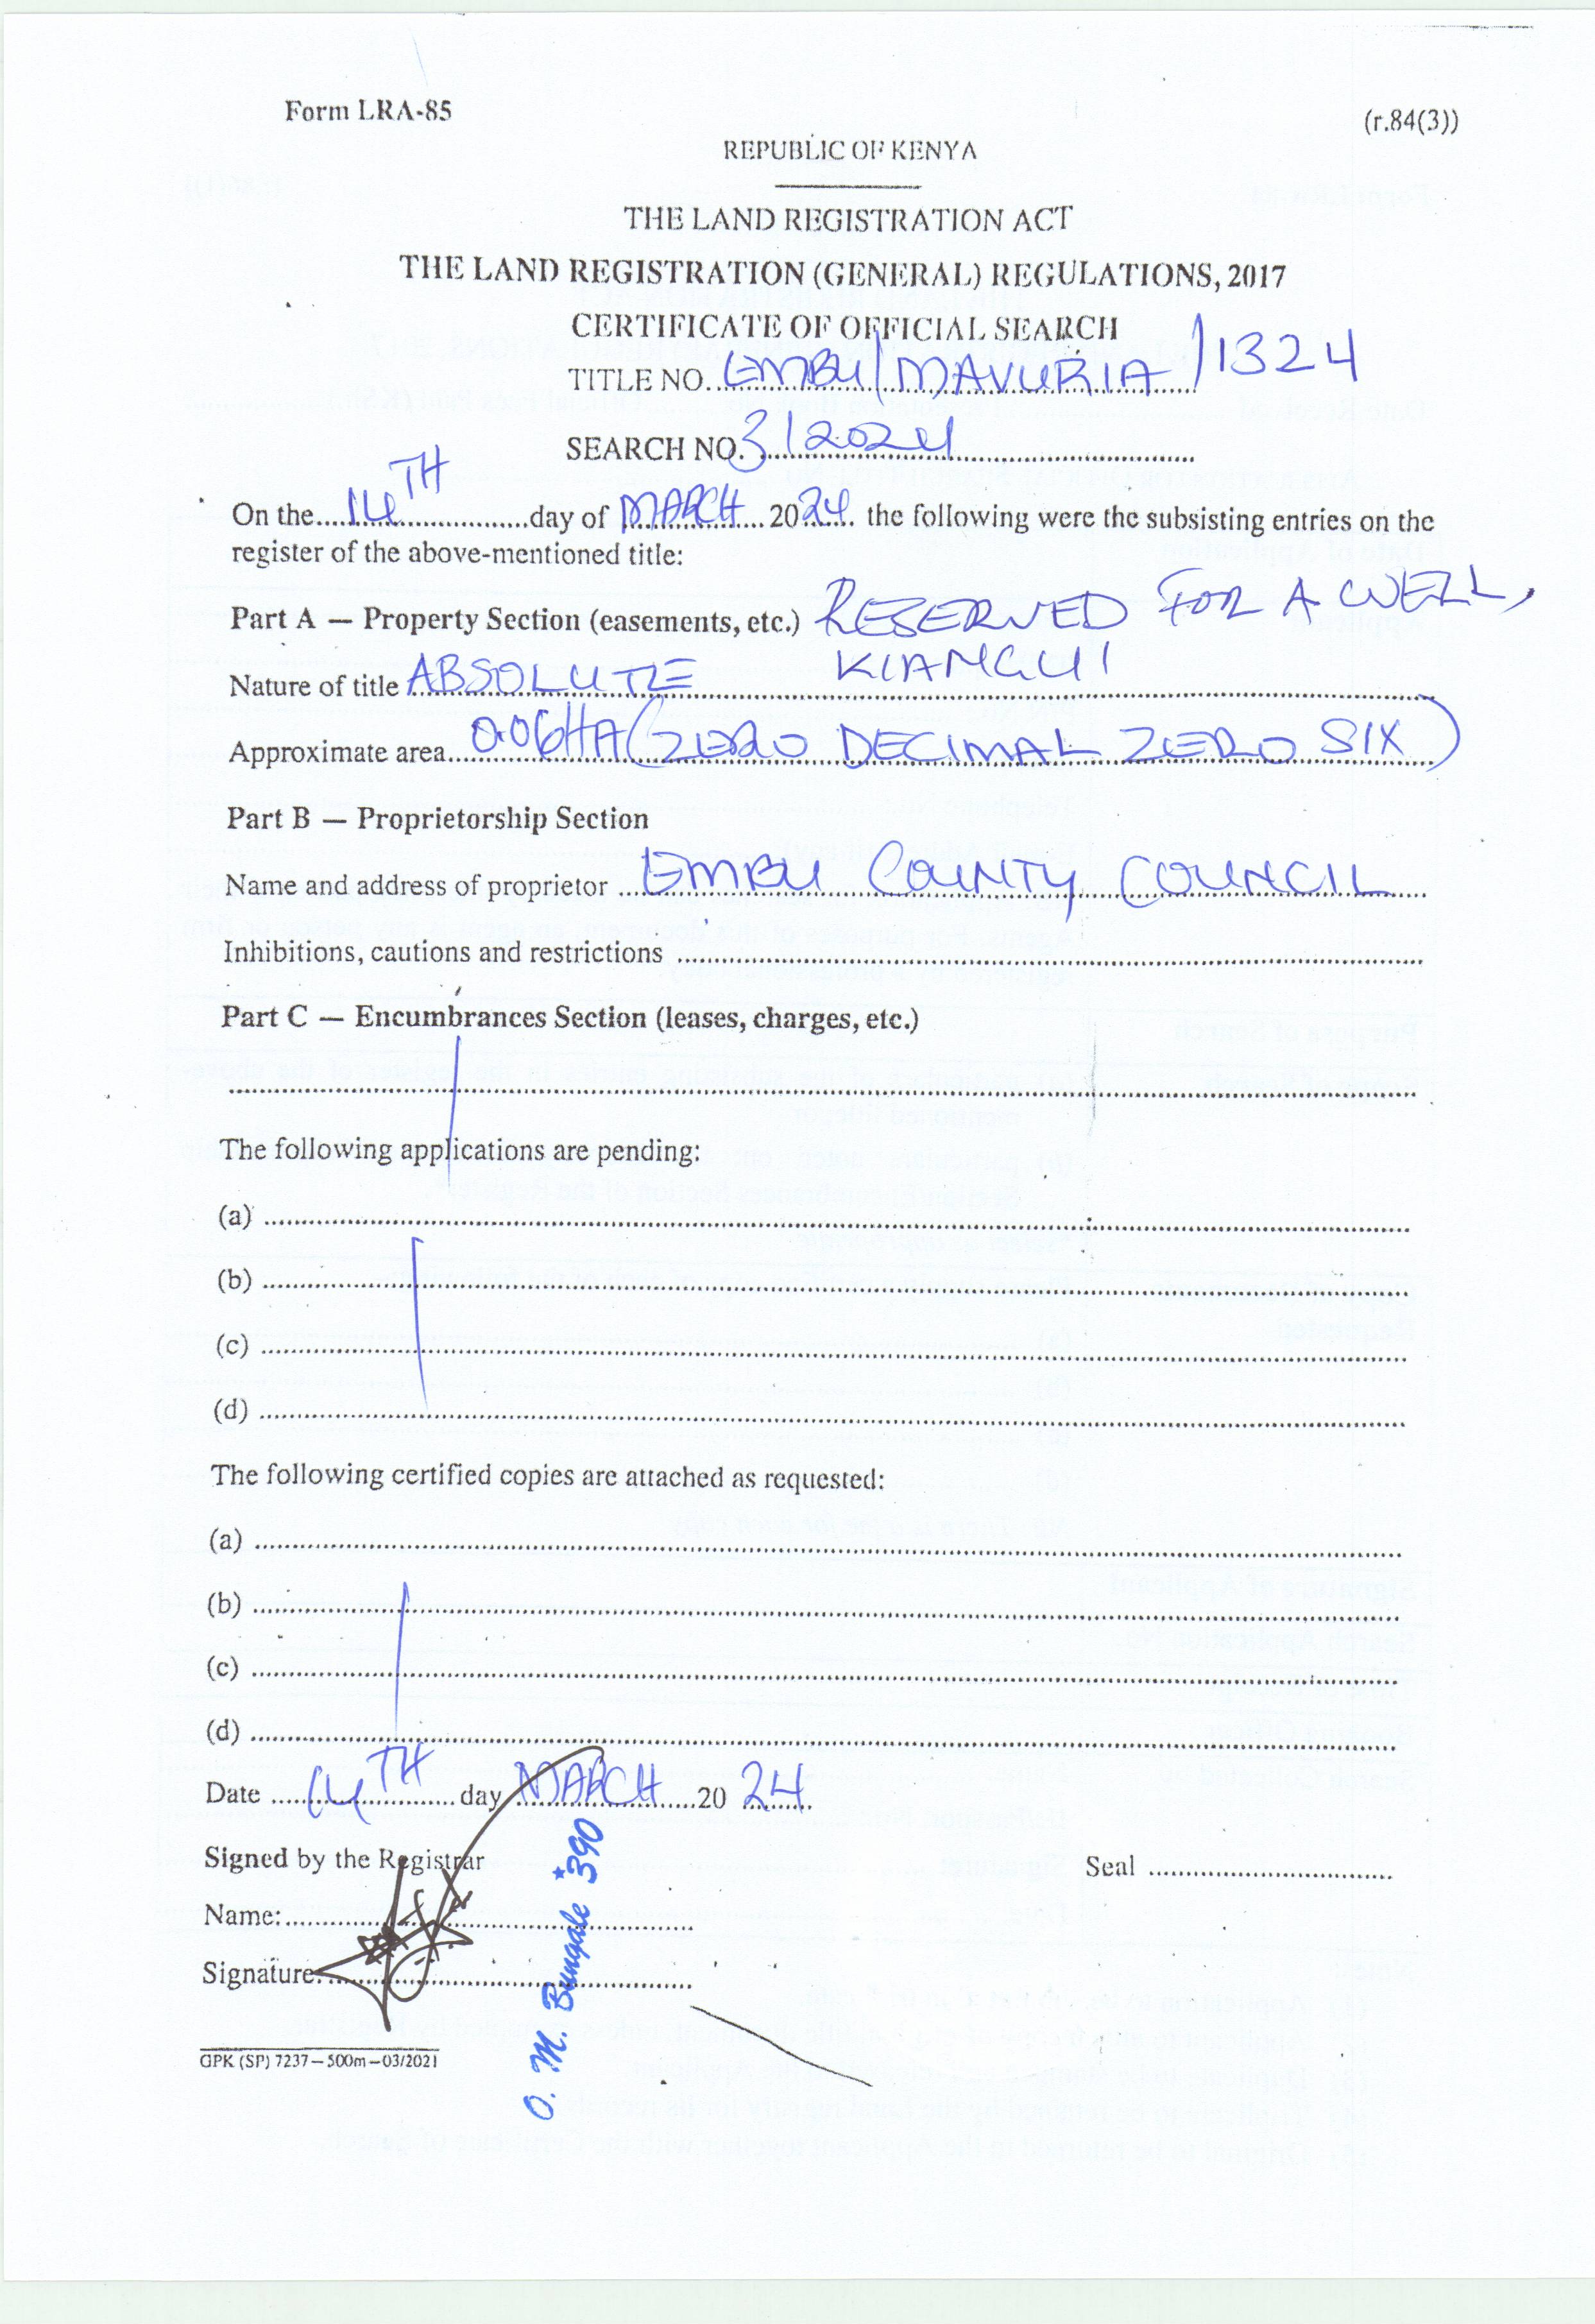 Form LRA-85
(r.84(3))
REPUBLIC OF KENYA
THE LAND REGISTRATION ACT
THE LAND REGISTRATION (GENERAL) REGULATIONS, 2017
CERTIFICATE OF OFFICIAL SEARCH
TITLE NO. EMBU/MAVURIA/1324
SEARCH NO. 3/2024
On the 14TH day of MARCH 2024 the following were the subsisting entries on the
register of the above-mentioned title:
Part A — Property Section (easements, etc.) RESERVED FOR A WELL,
KIANGUI
Nature of title ABSOLUTE
Approximate area 0.06HA (ZERO DECIMAL ZERO SIX)
Part B — Proprietorship Section
Name and address of proprietor EMBU COUNTY COUNCIL
Inhibitions, cautions and restrictions
Part C — Encumbrances Section (leases, charges, etc.)
The following applications are pending:
(a)
(b)
(c)
(d)
The following certified copies are attached as requested:
(a)
(b)
(c)
(d)
Date 14TH day MARCH 20 24
Signed by the Registrar
Seal
Name:
Signature:
O. M. Bungale *390
GPK (SP) 7237—500m—03/2021